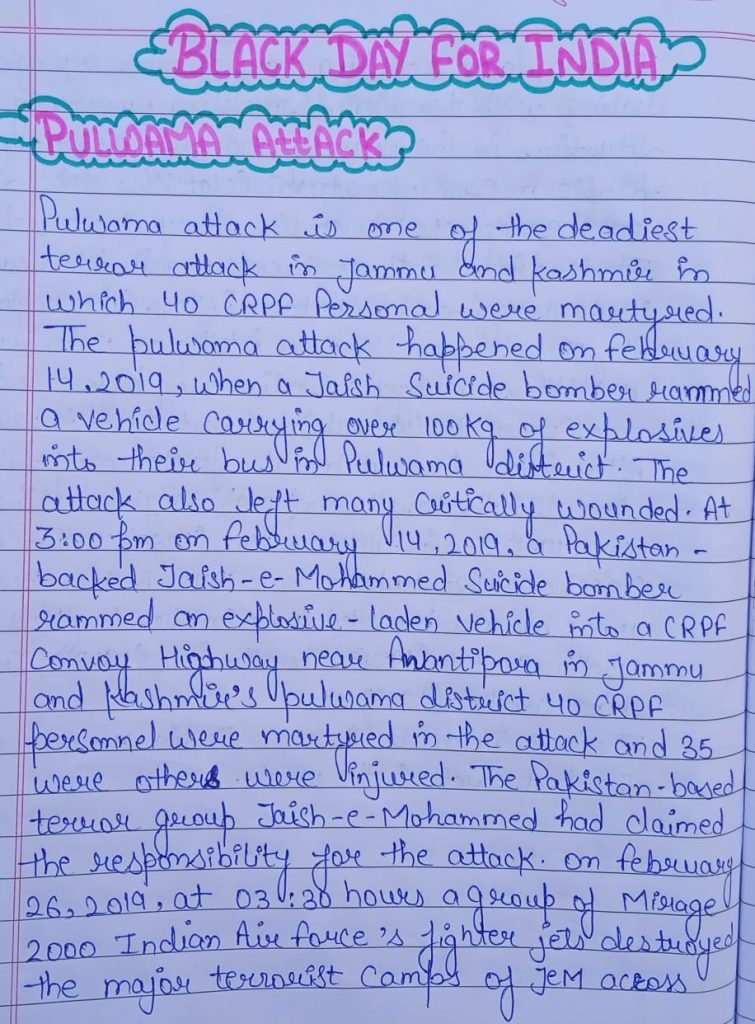 BLACK DAY FOR INDIA
PULWAMA ATTACK
Pulwama attack is one of the deadiest
terror attack in Jammu and kashmir in
which 40 CRPF Personal were martyred.
The pulwama attack happened on february
14, 2019, when a Jaish Suicide bomber rammed
a vehicle carrying over 100kg of explosives
into their bus in Pulwama district. The
attack also left many critically wounded. At
3:00 pm on february 14, 2019, a Pakistan-
backed Jaish-e-Mohammed Suicide bomber
rammed an explosive-laden vehicle into a CRPF
Convoy Highway near Awantipora in Jammu
and Kashmir's pulwama district 40 CRPF
personnel were martyred in the attack and 35
were others were injured. The Pakistan-based
terror group Jaish-e-Mohammed had claimed
the responsibility for the attack. on february
26, 2019, at 03:30 hours a group of Mirage
2000 Indian Air force's fighter jets destroyed
the major terrorist camps of JeM across